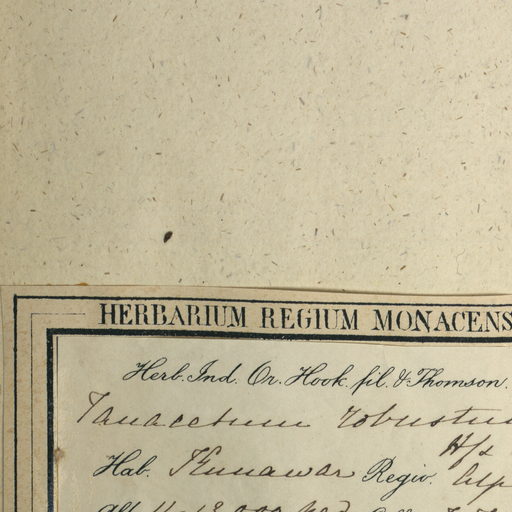 HERBARIUM REGIUM MONACENS
Herb. Ind. Or. Hook. fil. & Thomson.
Tanacetum robustu
H/s
Hab. Kunawar Regio. Alp
Alt. 11-13,000 ped.